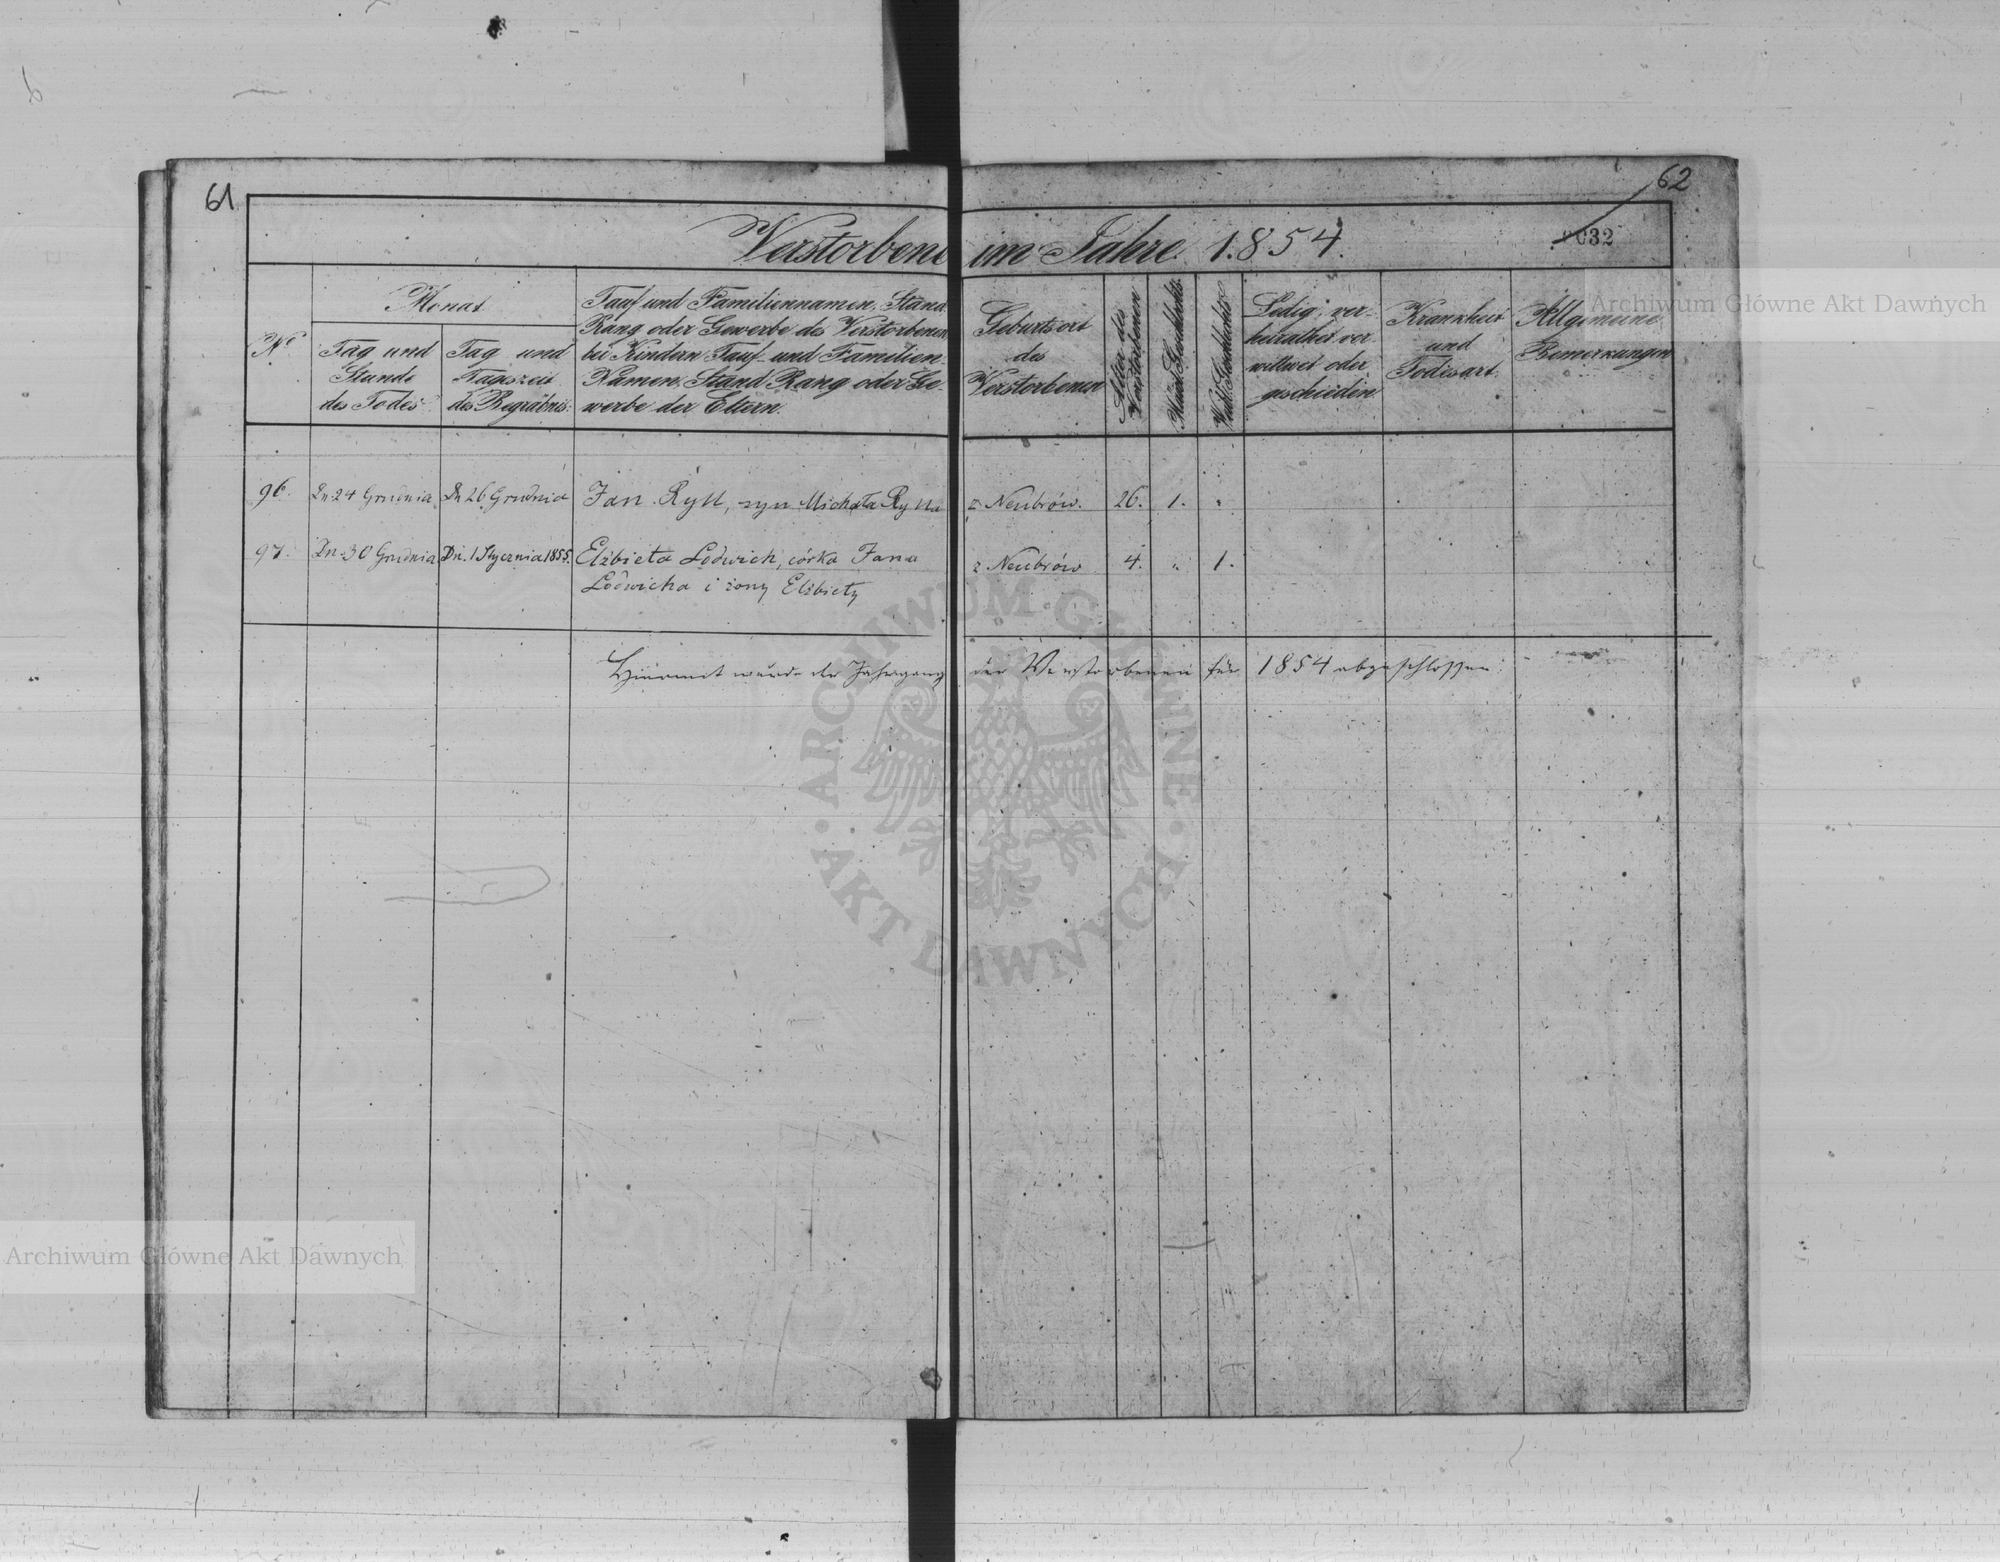 61
62
Verstorbene im Jahre 1854.
032
Archiwum Główne Akt Dawnych
No
Monat
Tag und
Stunde
des Todes
Tag und
Tageszeit
des Begräbnis:
Tauf und Familiennamen, Stand
Rang oder Gewerbe des Verstorbenen
bei Kindern Tauf- und Familien
Namen, Stand Rang oder Ge-
werbe der Eltern.
Geburtsort
des
Verstorbenen
Alter des
Verstorbenen
Geschlechts
Weibl. Geschlechts
Ledig, ver-
heirathet ver
wittwet oder
geschieden
Krankheit
und
Todesart
Allgemeine
Bemerkungen
96. Dn. 24 Grudnia Dn 26 Grudnia Jan Ryll, syn Michała Rylla z Neubrów. 26. 1. "
97. Dn. 30 Grudnia Dn. 1 Stycznia 1855. Elżbieta Lodwich, córka Jana z Neubrów 4. " 1.
Lodwicha i żony Elżbiety
Hiermit wurde der Jahrgang der Verstorbenen für 1854 abgeschlossen.
ARCHIWUM GŁÓWNE
AKT DAWNYCH
Archiwum Główne Akt Dawnych